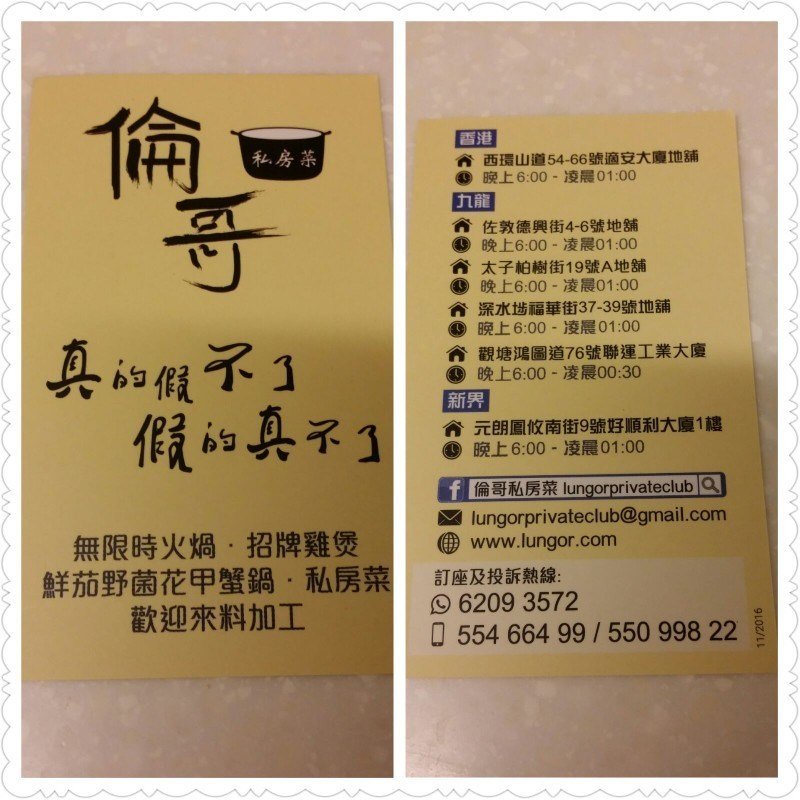 倫哥
私房菜
真的假不了
假的真不了
無限時火煱·招牌雞煲
鮮茄野菌花甲蟹鍋·私房菜
歡迎來料加工
香港
西環山道54-66號適安大廈地舖
晚上6:00 - 凌晨01:00
九龍
佐敦德興街4-6號地舖
晚上6:00 - 凌晨01:00
太子柏樹街19號A地舖
晚上6:00 - 凌晨01:00
深水埗福華街37-39號地舖
晚上6:00 - 凌晨01:00
觀塘鴻圖道76號聯運工業大廈
晚上6:00 - 凌晨00:30
新界
元朗鳳攸南街9號好順利大廈1樓
晚上6:00 - 凌晨01:00
f 倫哥私房菜 lungorprivateclub
lungorprivateclub@gmail.com
www.lungor.com
訂座及投訴熱線:
6209 3572
554 664 99 / 550 998 22
11/2016